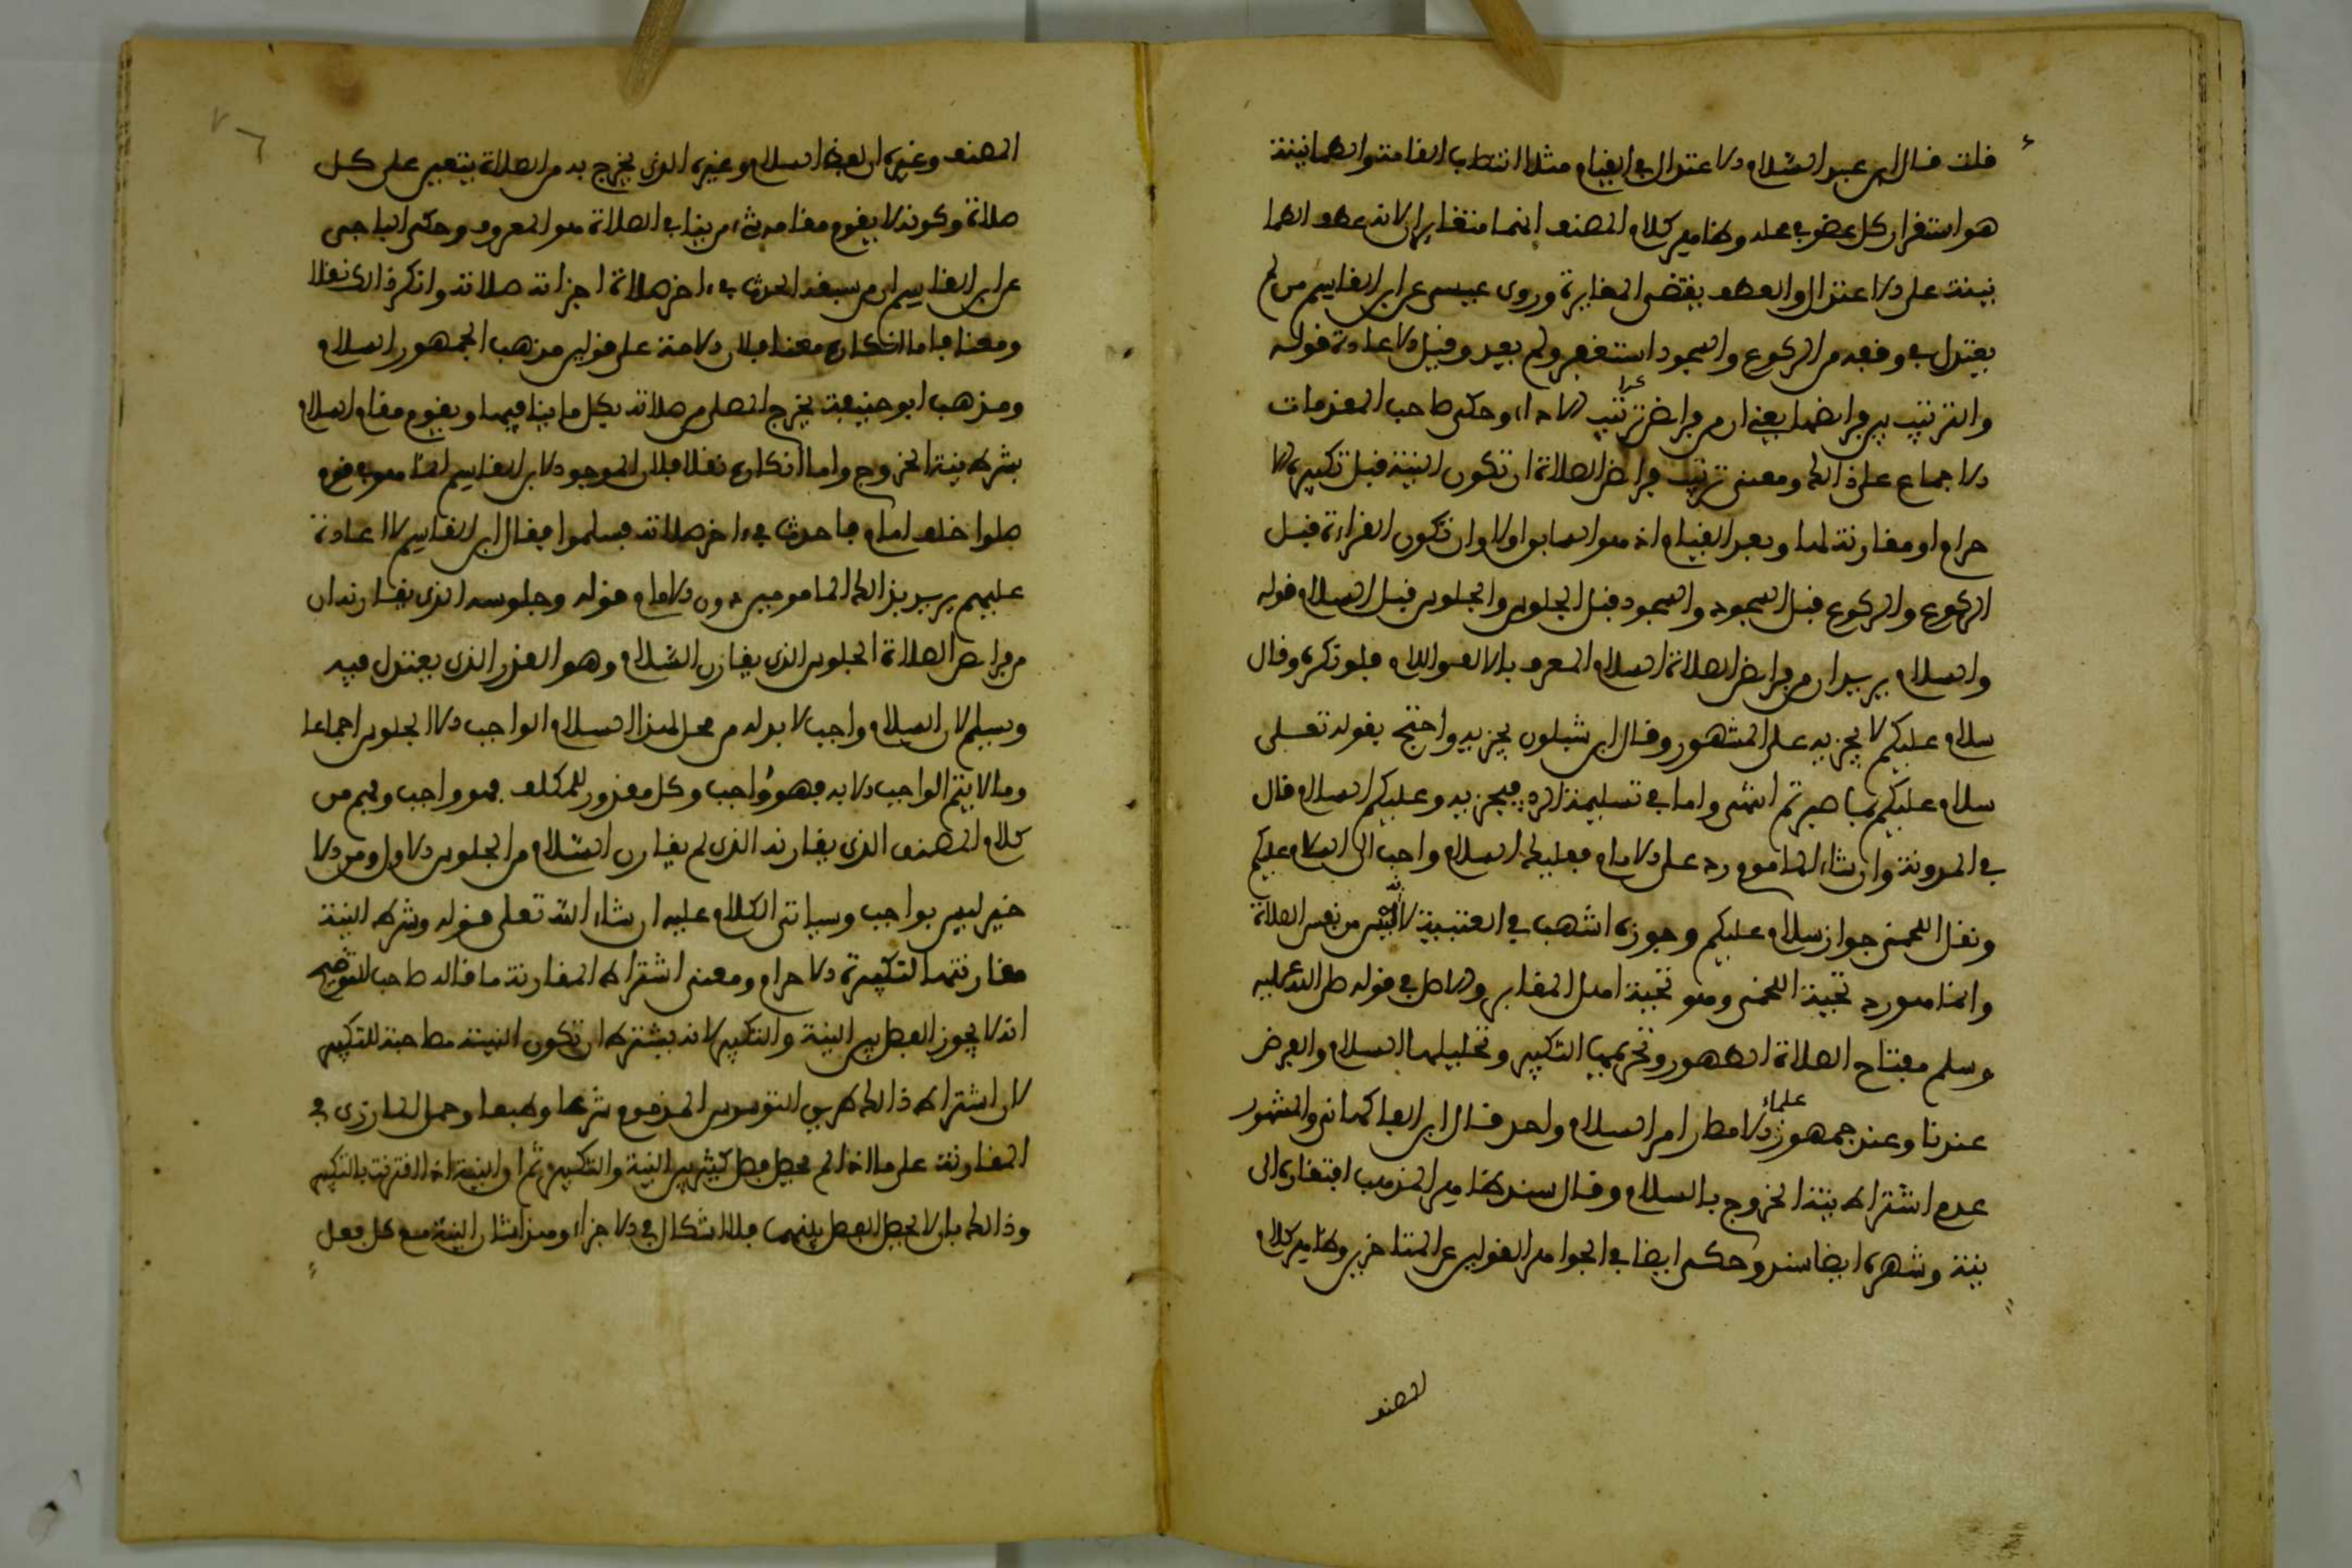 قلت قال ابن عبد السلام الاعتدال في القيام مثلا انتصاب القامة والطمانينة
هو استقرار كل عضو في محله وظاهر كلام المصنف انهما متغايران لانه عطف الطما
نينة على الاعتدال والعطف يقتضي المغايرة وروى عيسى عن ابن القاسم من لم
يعتدل في رفعه من الركوع والسجود استغفر ولم يعد وقيل الاعادة قوله
والترتيب بين فرائضها يعني ان من فرائض ترتيب الاداء وحكى صاحب المقدمات
الاجماع على ذالك ومعنى ترتيب فرائض الصلاة ان تكون النية قبل تكبيرة الا
حرام او مقارنة لها وبعد القيام اذ هو السابق اولا وان تكون القراءة قبل
الركوع والركوع قبل السجود والسجود قبل الجلوس والجلوس قبل السلام قوله
والسلام يريد ان من فرائض الصلاة السلام المعرف بالالف واللام فلو نكره وقال
سلام عليكم لا يجزيه على المشهور وقال ابن شبلون يجزيه واحتج بقوله تعلى
سلام عليكم بما صبرتم انتهى واما في تسليمة الرد فيجزيه وعليكم السلام قال
في المدونة وان شاء الماموم رد على الامام فعليك السلام واحب الي السلام عليكم
ونقل اللخمي جواز سلام عليكم وجوزه اشهب في العتبية لانه ليس من نفس الصلاة
وانما هو رد تحية اللخمي وهو تحية اهل المقابر والاصل في قوله صلى الله عليه
وسلم مفتاح الصلاة الطهور وتحريمها التكبير وتحليلها السلام والفرض
عندنا وعند جمهور علماء الامصار امر السلام واحد قال ابن الفاكهاني والمشهور
عدم اشتراط نية الخروج بالسلام وقال سند ظاهر المذهب افتقاره الى
نية وشهره ايضا سند وحكى ايضا في الجواهر القولين عن المتاخرين وظاهر كلام
المصنف
المصنف وغيره ان لفظ السلام وغيره الذي يخرج به من الصلاة يتعين على كل
صلاة وكونه لا يقوم مقامه شيء من ينافي الصلاة هو المعروف وحكى الباجي
عن ابن القاسم ان من سبقه الحدث في ءاخر صلاة اجزاته صلاته وانكر ذالك نقلا
ومعنا فاما انكاره معنا فلان الامة على قولين مذهب الجمهور السلام
ومذهب ابو حنيفة يخرج المصلي من صلاته بكل ما ينافيها ويقوم مقام السلام
بشرط نية الخروج واما انكاره نقلا فلان الموجود لابن القاسم انما هو في قوم
صلوا خلف امام فاحدث في ءاخر صلاته فسلموا فقال ابن القاسم لا اعادة
عليهم يريد بذالك المامومين دون الامام قوله وجلوسه الذي يقارنه ان
من فرائض الصلاة الجلوس الذي يقارن السلام وهو القدر الذي يعتدل فيه
ويسلم لان السلام واجب لا بد له من محل لهذا السلام الواجب الا الجلوس اجماعا
وما لا يتم الواجب الا به فهو واجب وكل مقدور للمكلف فهو واجب وفهم من
كلام المصنف الذي يقارنه الذي لم يقارن السلام من الجلوس الاول ومن الا
خير ليس بواجب وسياتي الكلام عليه ان شاء الله تعلى قوله وشرط النية
مقارنتها لتكبيرة الاحرام ومعنى اشتراط المقارنة ما قاله صاحب التوضيح
انه لا يجوز الفصل بين النية والتكبير لانه يشترط ان تكون النية مصاحبة للتكبير
لان اشتراط ذالك طريق التوسوس المذموم شرعا وطبعا وحمل المازري في
المقارنة على ما اذا لم يحصل فصل كثير بين النية والتكبير ثم او النية اذا اقترنت بالتكبير
وذالك بان لا يحصل الفصل بينهما فلا اشكال في الاجزاء وهذا شان النية مع كل فعل